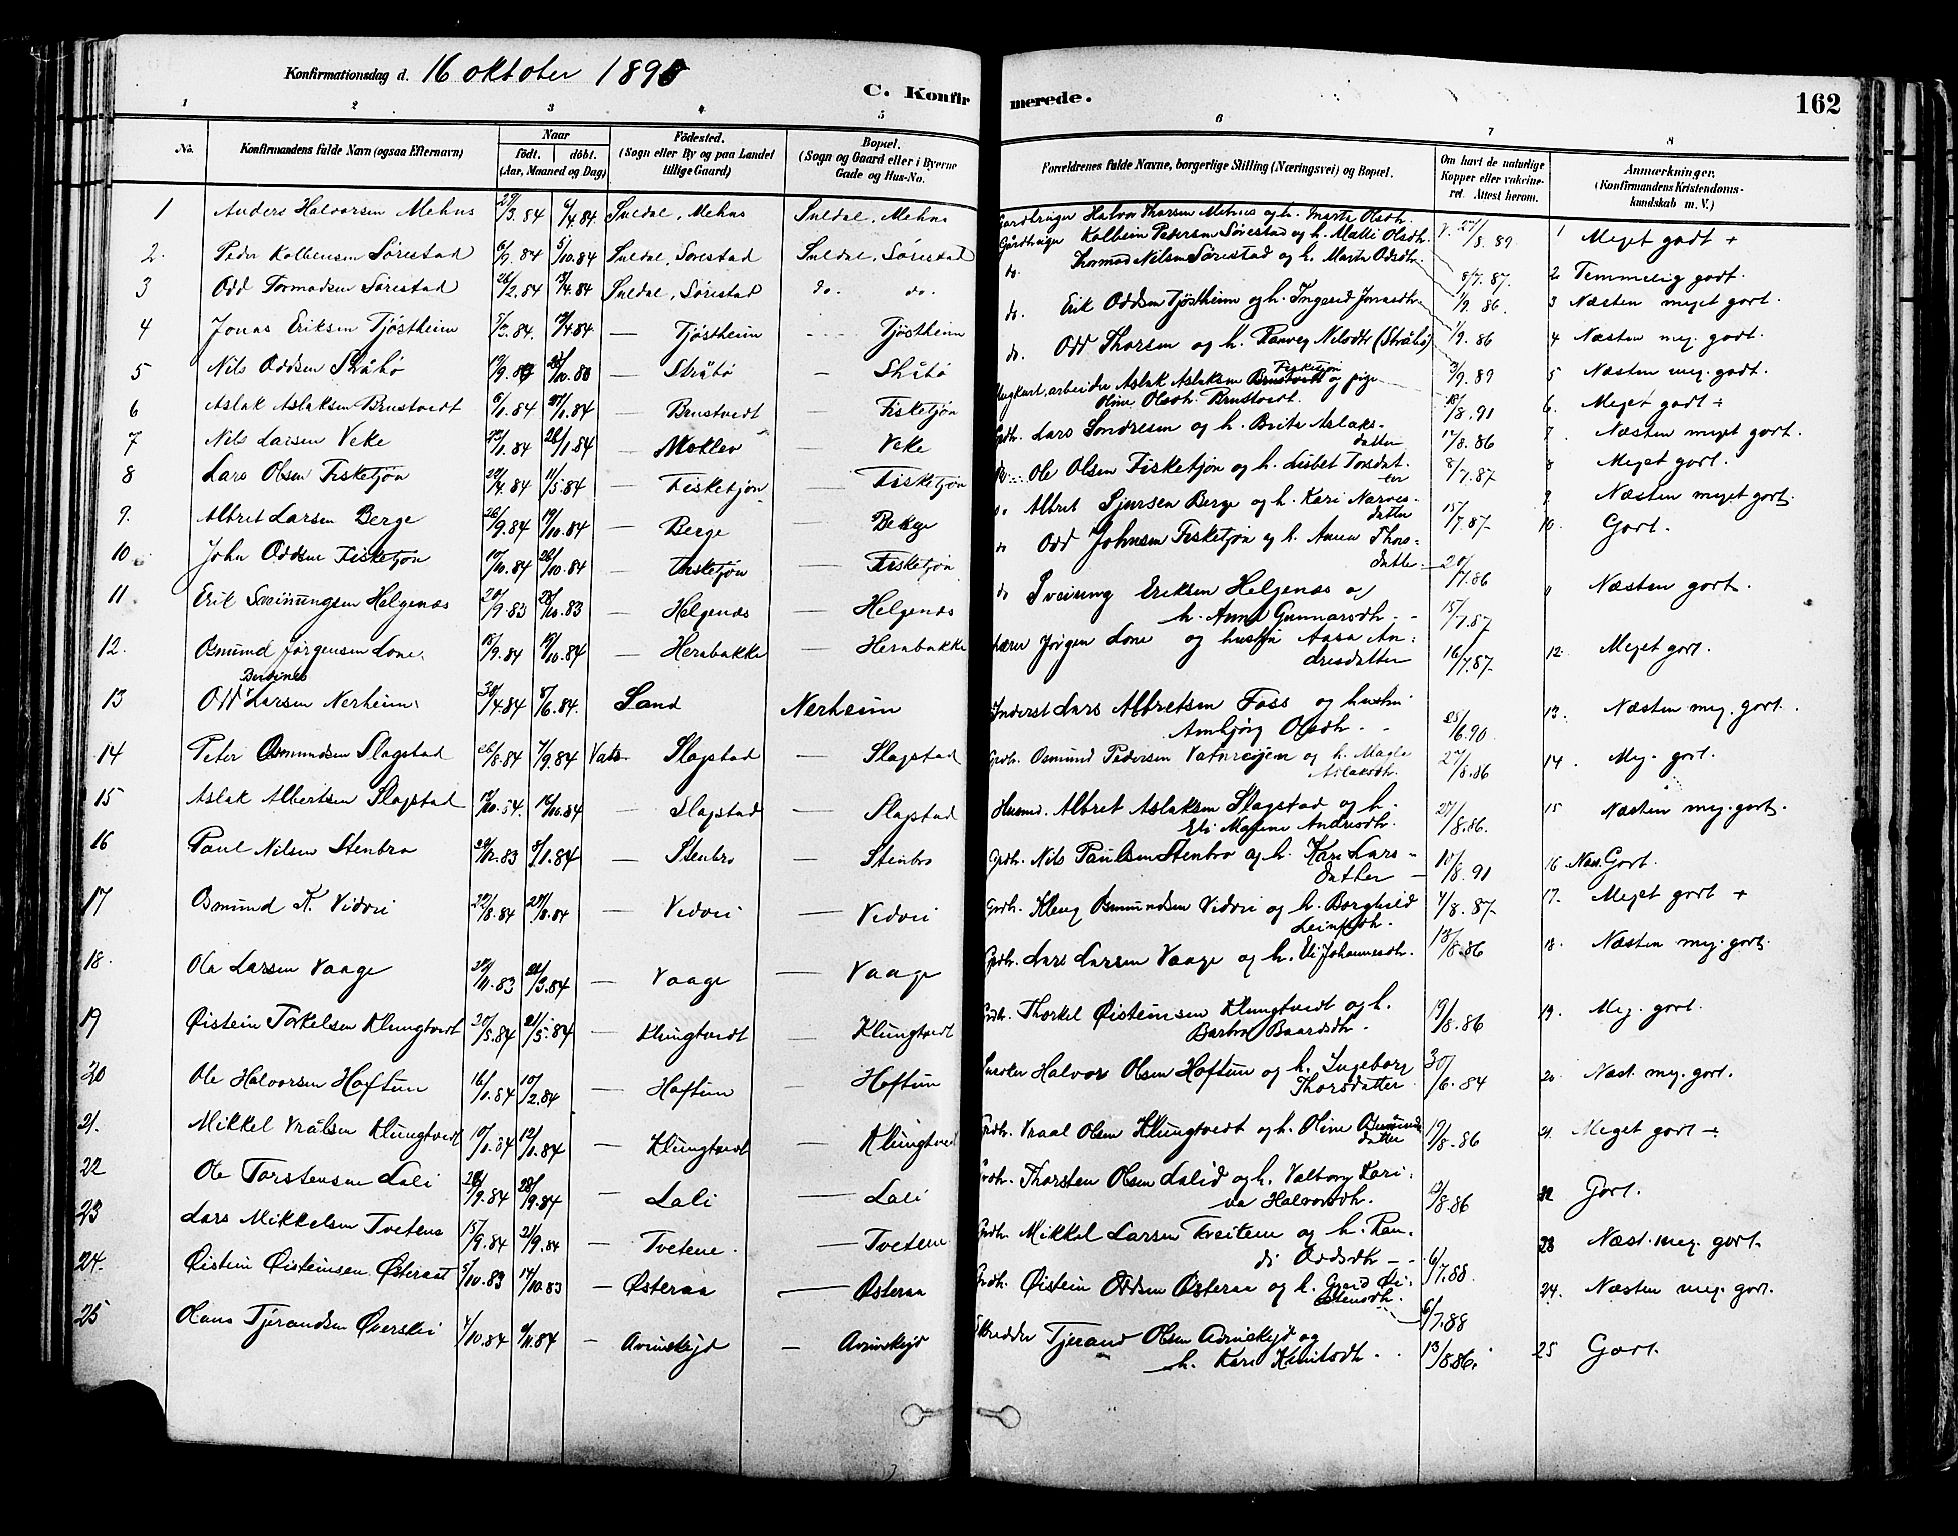 Konfirmationsdag d. 16 oktober 1898
C. Konfirmerede.
162
1 2 3 4 5 6 7 8
No.
Konfirmandens fulde Navn (ogsaa Efternavn)
Naar
født. døbt.
(Aar, Maaned og Dag)
Fødested.
(Sogn eller By og paa Landet tillige Gaard)
Bopæl.
(Sogn og Gaard eller i Byerne Gade og Hus-No.
Forældrenes fulde Navne, borgerlige Stilling (Næringsvei) og Bopæl.
Om havt de naturlige Kopper eller vakcineret. Attest herom.
Anmærkninger.
(Konfirmandens Kristendomskundskab m. V.)
1 Anders Halvorsen Mehus 29/3.84 6/4.84 Suldal, Mehus Suldal, Mehus Gardbruger Halvor Thorsen Mehus og h. Marta Olsdtr. 1 Meget godt +
2. Peder Kolbensen Sørestad 6/9.84 5/10.84 Suldal, Sørestad Suldal, Sørestad Gårdbruger Kolbein Pedersen Sørestad og h. Malli Olsdtr. 2 Temmelig godt.
3 Odd Tormodsen Sørestad 26/2.84 13/4.84 Suldal, Sørestad do. do. do. Thormod Nilsen Sørestad og h. Marta Odsdtr. 8/7.87. 3 Næsten meget gott.
4 Jonas Eriksen Tjøstheim 5/3.84. 13/4 84 — Tjøstheim Tjøstheim do. Erik Oddsen Tjøstheim og h. Ingerid Jonasdtr. 1/9.86. 4 Næsten mej. gott.
5 Nils Oddsen Stråbø — Stråbø — Stråbø do. Odd Thorsen og h. Ranveg Nilsdtr (Stråbø) 1/9.86 5 Næsten mej. godt.
6 Aslak Aslaksen Brustvedt 6/1.84 27/1.84 — Brustvedt — Fisketjøn Ungkarl, arbeider Aslak Aslaksen Brustvedt Fisketjøn og pige Oline Olsdtr. Brustvedt. 3/9.89 6. Meget godt ÷
7 Nils Larsen Veke 23/1.84 — Moklev — Veke Grdbr. Lars Sondresen og h. Brita Aslaksdatter 12/8.86 7. Næsten meget gott.
8 Lars Olsen Fisketjøn 20/4.84 11/5.84 — Fisketjøn — Fisketjøn Ole Olsen Fisketjøn og h. Lisbet Torsdatter 8/7.87 8 Meget gott.
9. Albret Larsen Berge 26/9.84 19/10.84 — Berge — Berge do Albret Sjursen Berge og h. Kari Narvesdatter 15/7.87. 9 Næsten meget gort.
10 John Oddsen Fisketjøn 10/10.84 26/10.84 — Fisketjøn — Fisketjøn do Odd Johnsen Fisketjøn og h. Anna Thorsdatter. 20/7.86 10. Gort.
11 Erik Sveinungsen Helgenæs 20/9.83 28/10.83 — Helgenæs — Helgenæs do Sveinung Eriksen Helgenæs og h. Anna Gunnarsdtr. 15/7.87 11 Næsten gort.
12. Osmund Jørgensen Lone 13/9.84 19/10.84 — Herabakke — Herabakke Lærer Jørgen Lone og hustru Aasa Andresdatter 16/7.87. 12. Meget gort.
13 Odd Berdines Larsen Nerheim 30/4.84 8/6.84. Sand Nerheim Inderst Lars Albretsen Foss og hustru Ambjørg Olsdtr. 25/6.90. 13. Næsten mej. gort.
14 Peter Osmundsen Slagstad 26/8.84 7/9.84 Vats. Slagstad — Slagstad Grdbr. Osmund Pedersen Vatnrøjen og h. Magla Aslaksdtr. 27/8.86 14. Mej. gort.
15 Aslak Albertsen Slagstad 12/10.84. 12/10.84 — Slagstad — Slagstad Husmd. Albret Aslaksen Slagstad og h. Eli Malene Andrisdtr. 27/8.86. 15 Næsten mej. gort.
16 Paul Nilsen Stenbro 29/12.83 8/1.84 — Stenbro — Stenbro Grdbr. Nils Paulsen Stenbro og h. Kari Larsdatter 10/8.91 16 Næst. Gort.
17 Osmund K. Vidvei 22/8.84 24/8.84 — Vidvei — Vidvei Grdbr. Kleng Osmundsen Vidvei og h. Borghild Leinfsdtr. 4/8.87. 17. Meget gort +
18 Ole Larsen Vaage 3.84 — Vaage — Vaage Grdbr. Lars Larsen Vaage og h. Eli Johannesdtr. 13/8.86 18. Næsten mej. gort.
19 Øistein Torkelsen Klungtvedt 20/5.84 21/5.84 — Klungtvedt Klungtvedt Grdbr. Thorkel Øisteinsen Klungtvedt og h. Barbro Baardsdtr. 19/8.86 19. Mej. gort.
20 Ole Halvorsen Hoftun 16/1.84 10/2.84 — Hoftun Hoftun Halvor Olsen Hoftun og h. Ingeborg Thorsdatter 30/6.84 20. Næst. mej. gort.
21. Mikkel Vrålsen Klungtvedt 10/1.84 12/1.84 — Klungtvedt — Klungtvedt Grdbr. Vraal Olsen Klungtvedt og h. Oline Osmundsdatter 19/8.86 21. Meget gort ÷
22 Ole Torstensen Lali 9.84 28/9.84 — Lali — Lali Grdbr. Thorsten Olsen Lalid og h. Valborg Karina Halvorsdtr. 12/8.86 22 Gort.
23 Lars Mikkelsen Tvetene 15/9.84 21/9.84 — Tvetene. — Tvetene Grdbr. Mikkel Larsen Tveiten og h. Randi Oddsdtr 6/7.88. 23 Næst. mej. gort.
24. Øistein Øisteinsen Østeraa 5/10.83 14/10.83 — Østeraa — Østeraa Grdbr. Øistein Oddsen Østeraa og h. Øistensdtr. 6/7.88 24. Næsten mej. gort.
25 Hans Tjerandsen Øverskei 4/10.84 — Avinskejd — Avinskejd Skredder Tjerand Olsen Avinskejd og h. Kari Knutsdtr. 13/8.86. 25 Gort.